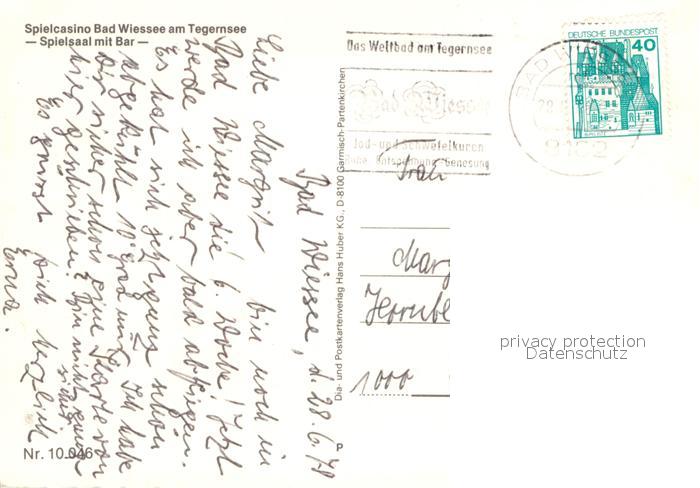 Spielcasino Bad Wiessee am Tegernsee
— Spielsaal mit Bar —
Bad Wiessee, d. 28.6.78
Liebe Margrit – bin noch in
Bad Wiessee die 6. Woche! Jetzt
werde ich aber bald abfliegen.
Es hat sich jetzt ganz schön
abgekühlt 10 Grad und ich habe
Dir sicher schon eine Karte von
hier geschrieben? Bin nicht genau
sicher
Es grüsst Dich herzlich
Erna.
Nr. 10.046
Dia- und Postkartenverlag Hans Huber KG., D-8100 Garmisch-Partenkirchen
P
Das Weltbad am Tegernsee
Bad Wiessee
Jod- und Schwefelkuren
Ruhe · Entspannung · Genesung
BAD WIESSEE
8182
DEUTSCHE BUNDESPOST
40
Frau
Marg
1000
privacy protection
Datenschutz